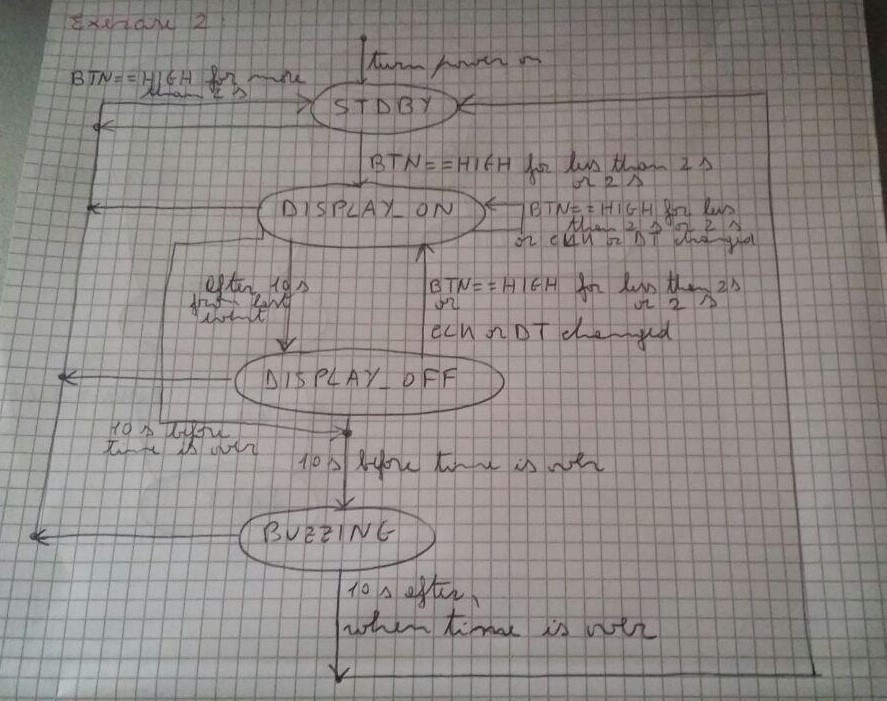 Exercise 2
turn power on
BTN==HIGH for more
than 2 s
STDBY
BTN==HIGH for less than 2 s
or 2 s
DISPLAY_ON
BTN==HIGH for less
than 2 s or 2 s
or CLK or DT changed
after 10 s
from last
event
BTN==HIGH for less than 2s
or 2 s
or
CLK or DT changed
DISPLAY_OFF
10 s before
time is over
10s before time is over
BUZZING
10 s after,
when time is over